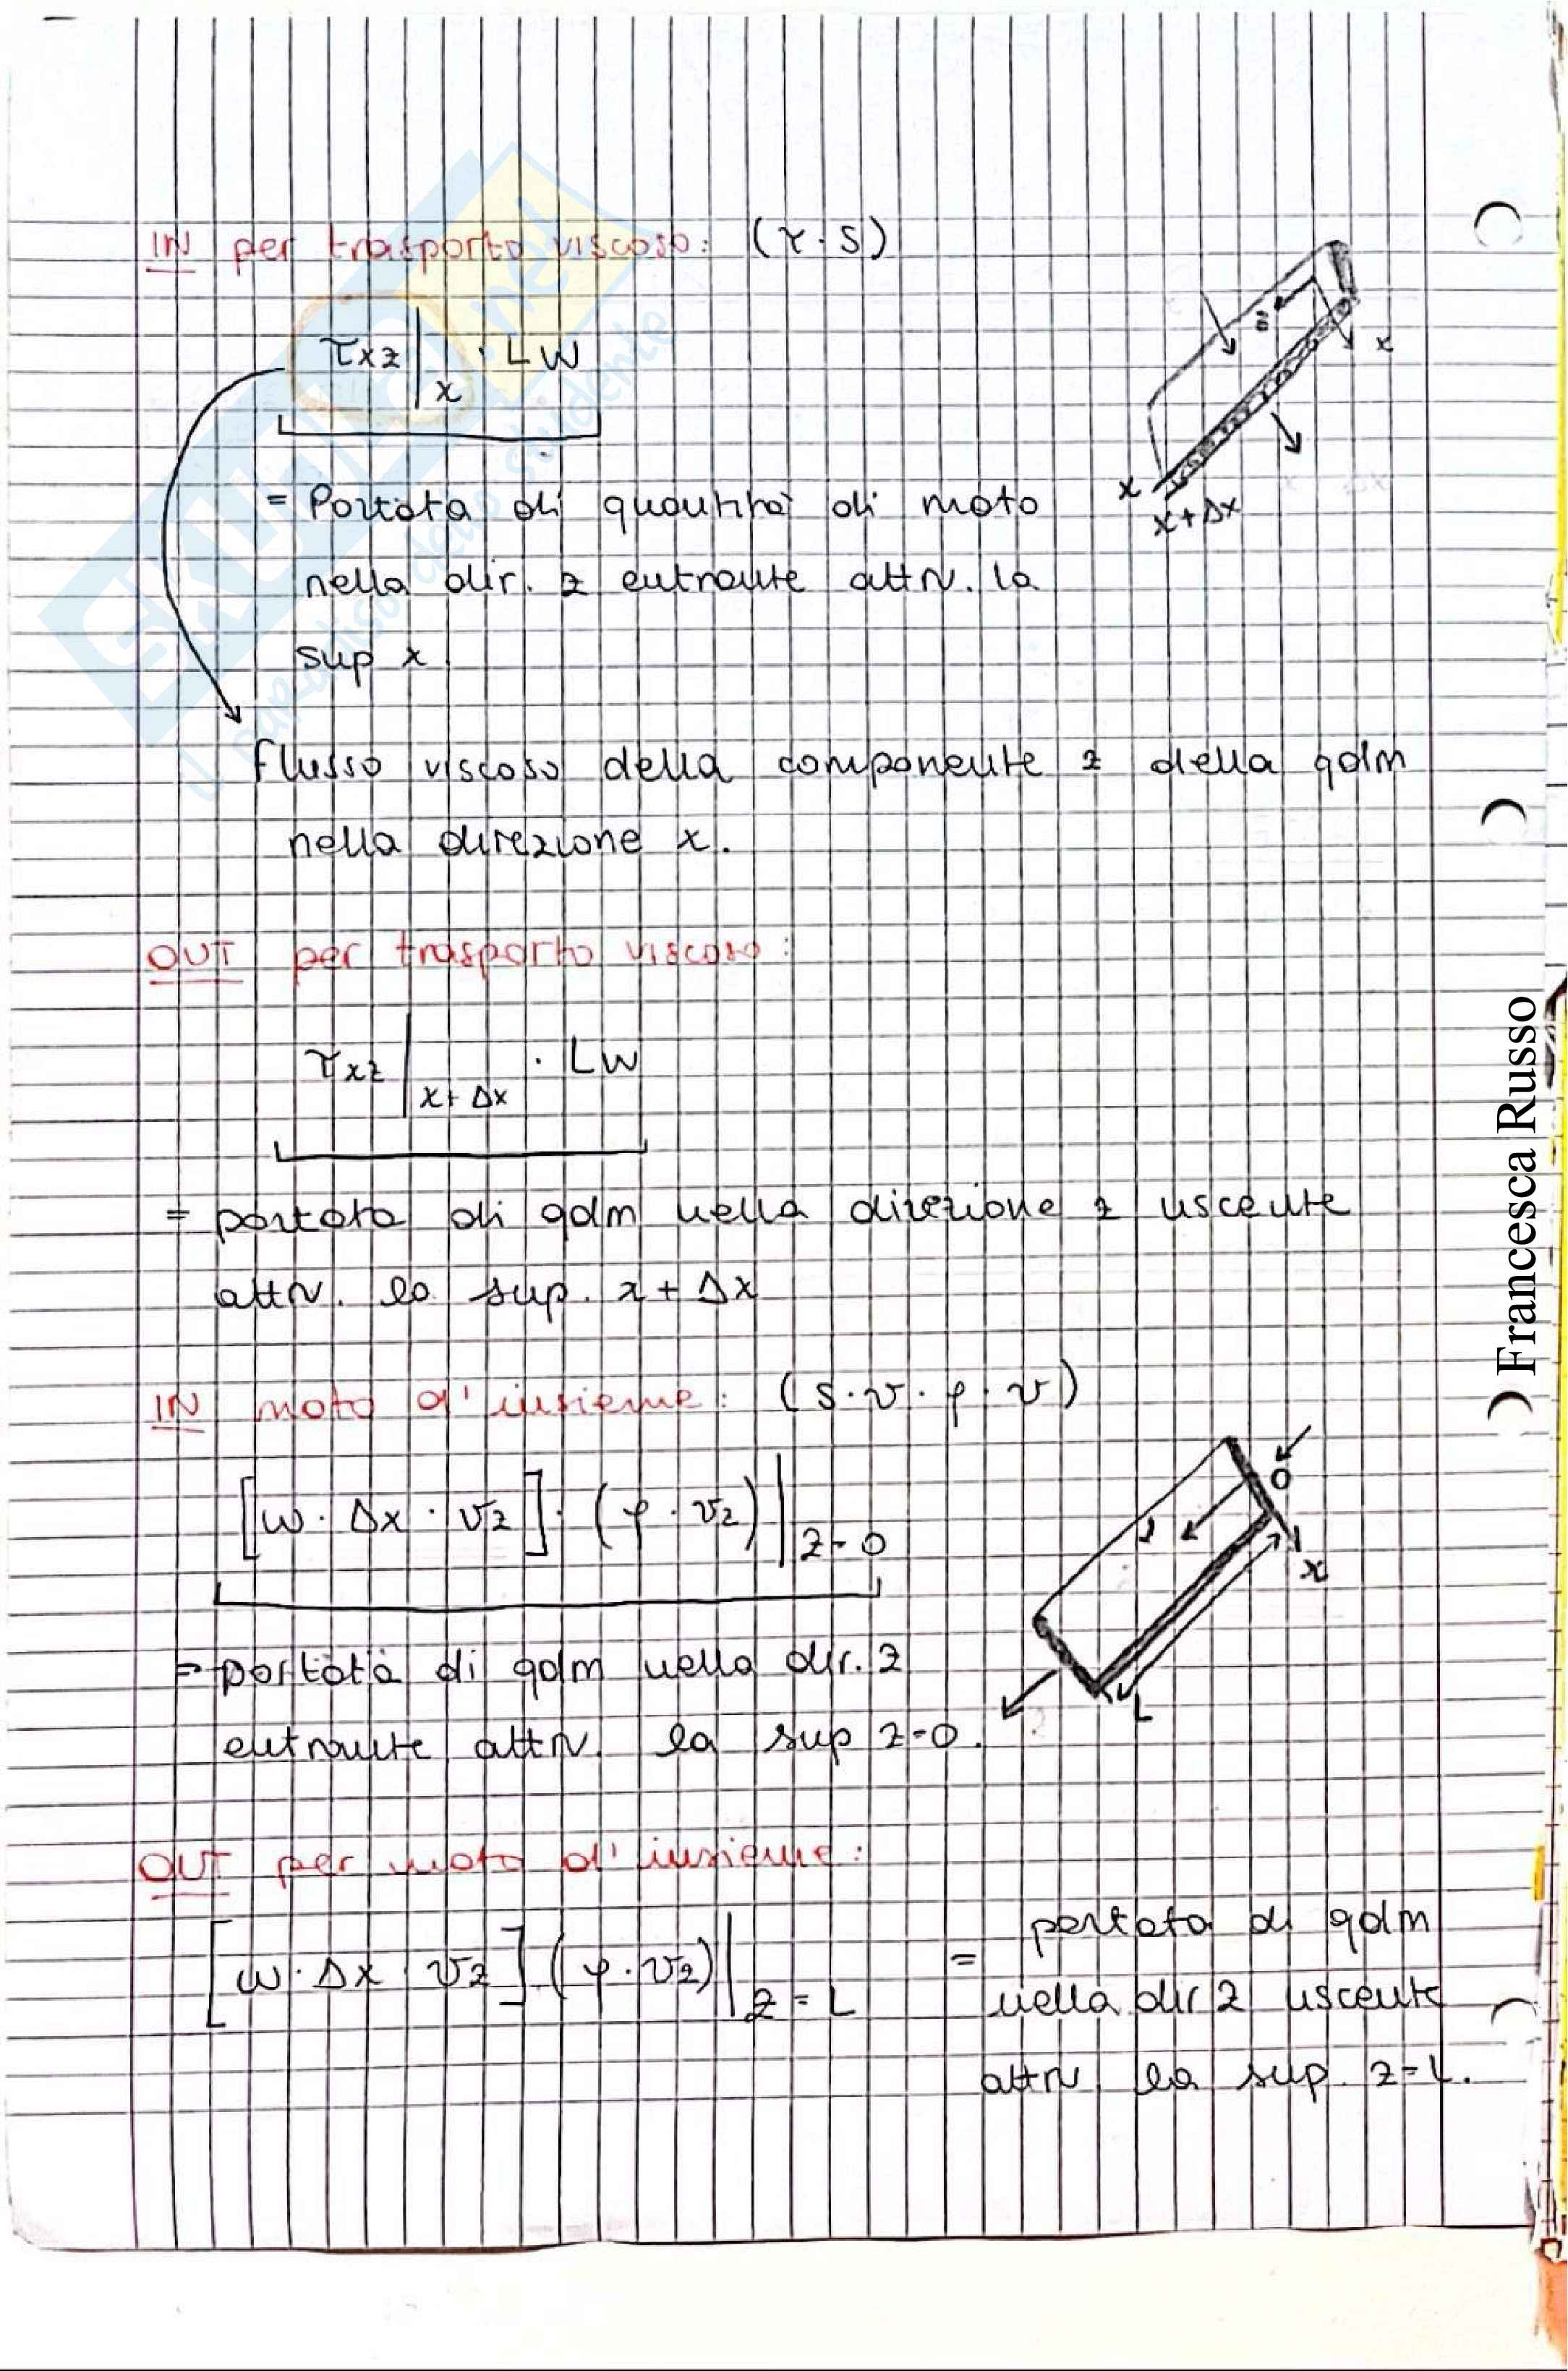 IN per trasporto viscoso: (τ · S)
τxz|x · LW
= Portata di quantità di moto
nella dir. z entrante attr. la
sup x
flusso viscoso della componente z della qdm
nella direzione x.
z
x
x
x+Δx
OUT per trasporto viscoso:
τxz|x+Δx · LW
= portata di qdm nella direzione z uscente
attr. la sup. x + Δx
IN moto d'insieme: (S · v · ρ · v)
[W · Δx · vz] · (ρ · vz)|z=0
= portata di qdm nella dir. z
entrante attr. la sup z=0.
0
x
L
OUT per moto d'insieme:
[W · Δx · vz] (ρ · vz)|z = L
= portata di qdm
nella dir z uscente
attr la sup. z=L.
Francesca Russo
il paradiso dello studente